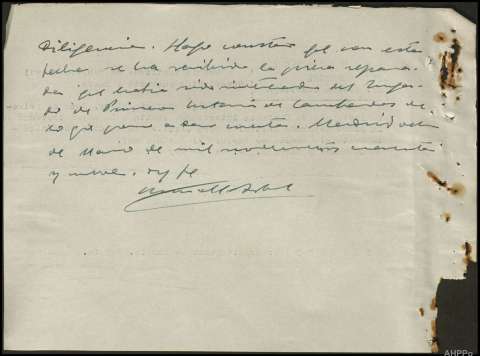 Diligencia. Hago constar qe con esta
fecha se ha recibido la pieza separa-
da que había sido interesada del Juzga-
do de Primera Instancia de Cambados de
lo qe paso a dar cuenta. Madrid ocho
de Mayo de mil novecientos cuarenta
y nueve. Doy fe
AHPPo